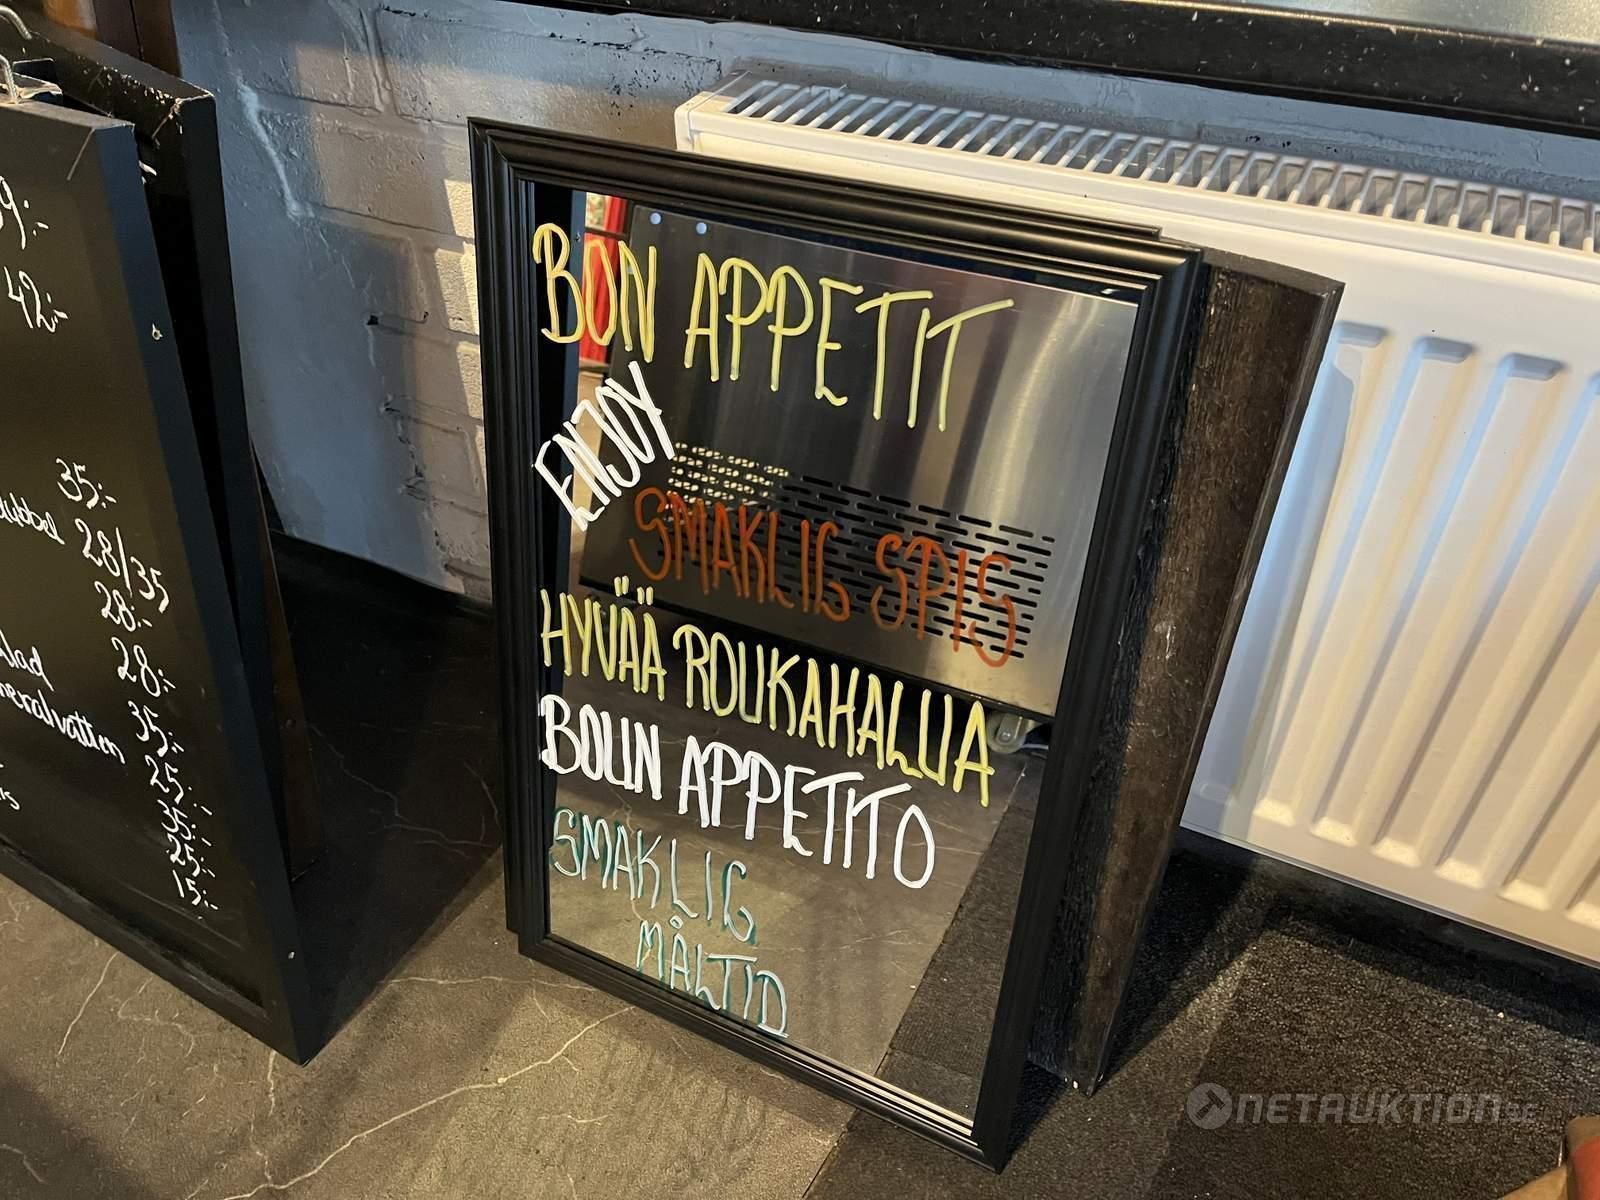 9:-
42:-
35:-
28/35
28:-
28:-
35:-
25:-
35:-
25:-
15:-
BON APPETIT
ENJOY
SMAKLIG SPIS
HYVÄÄ ROUKAHALUA
BOUN APPETITO
SMAKLIG
MÅLTID
NETAUKTION.SE